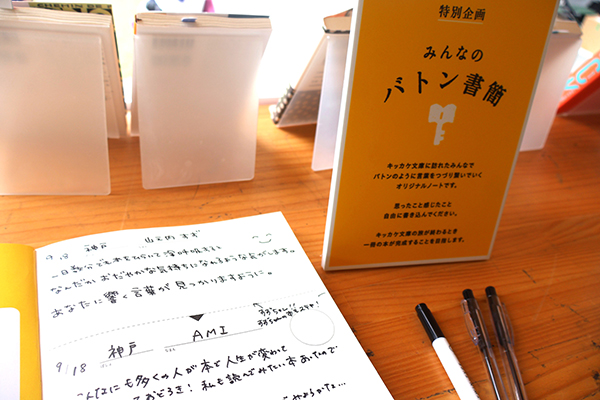 特別企画
みんなの
バトン書簡
キッカケ文庫に訪れたみんなで
バトンのように言葉をつづり繋いでいく
オリジナルノートです。
思ったこと感じたこと
自由に書き込んでください。
キッカケ文庫の旅が終わるとき
一冊の本が完成することを目指します。
9/18 神戸
なんだかおだやかな気持ちになれるような気がします。
あなたに響く言葉が見つかりますように。
9/18 神戸 AMI
こんなにも多くの人が本で人生が変わって
おどろき! 私も読んでみたい本あったので